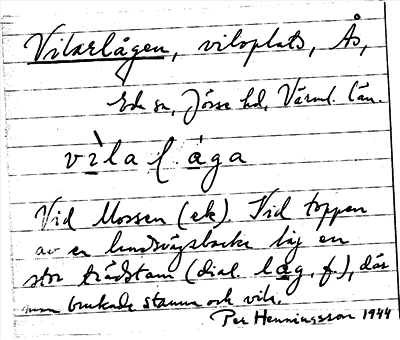 Vilarlågen, viloplats, Ås,
Eda sn, Jösse hd, Värml. län.
vìla l ága
Vid Mossen (ek). Vid toppen
av en landsvägsbacke låg en
stor trädstam (dial. låg, f.), där
man brukade stanna och vila.
Per Henningsson 1944